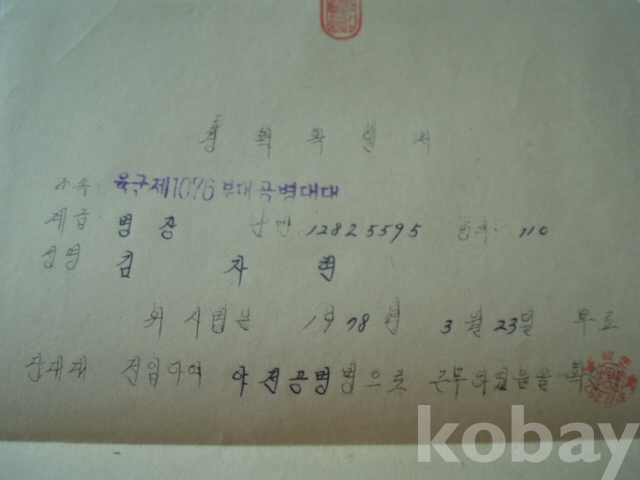 경력확인서
소속: 육군제1076부대공병대대
계급 병장 군번 12825595 병과: 110
성명 김 자 현
위 사병은 1978년 3월 23일 부로
당대대 전입하여 야전공병병으로 근무하였음을 확
kobay